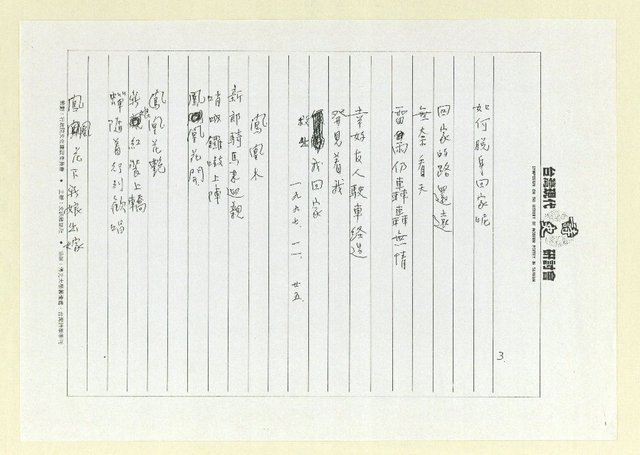 台灣現代詩史研討會
SYMPOSIUM ON THE HISTORY OF MODERN POETRY IN TAIWAN
3.
如何脫身回家呢
回家的路還遠
無奈看天
雷雨仍轟轟無情
幸好友人駛車經過
發見着我
我回家
一九九七、一一、廿五
鳳凰木
新郎騎馬來迎親
嗩吶鑼鼓上陣
鳳凰花開
鳳凰花艷
新娘紅裝上轎
蟬隨着行列歡唱
鳳凰花下新娘出嫁